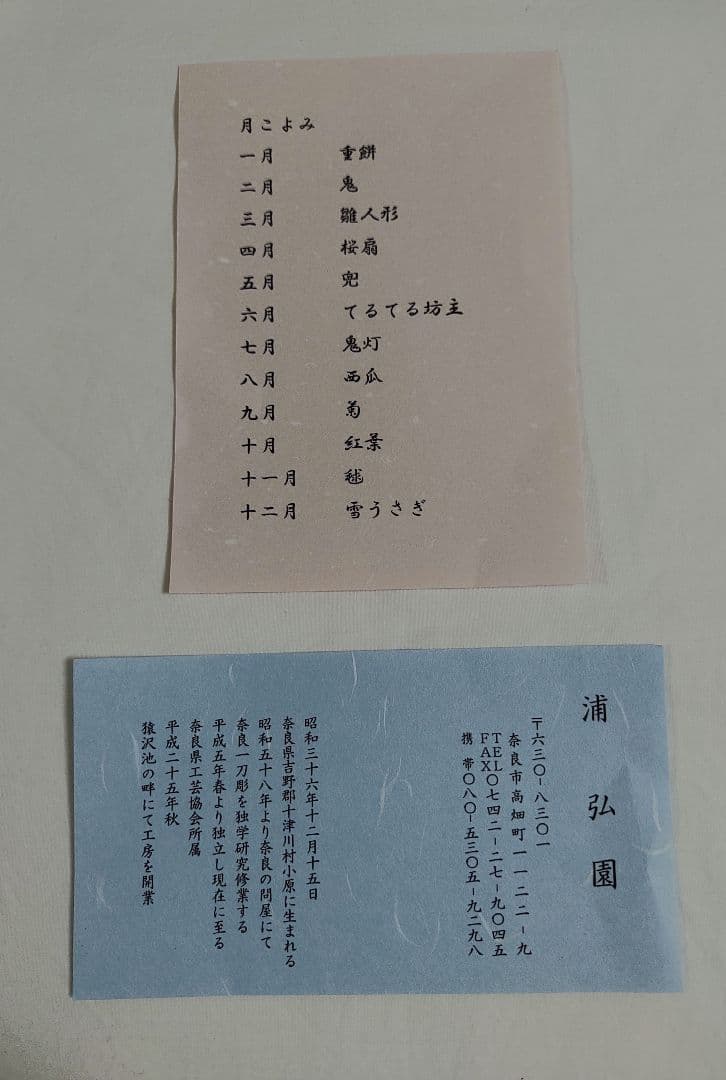 月こよみ
一月 重餅
二月 鬼
三月 雛人形
四月 桜扇
五月 兜
六月 てるてる坊主
七月 鬼灯
八月 西瓜
九月 菊
十月 紅葉
十一月 毬
十二月 雪うさぎ
浦弘園
〒六三〇-八三〇一
奈良市高畑町一一二二-九
TEL〇七四二-二七-九〇四五
FAX
携帯〇八〇-五三〇五-九二九八
昭和三十六年十二月十五日
奈良県吉野郡十津川村小原に生まれる
昭和五十八年より奈良の問屋にて
奈良一刀彫を独学研究修業する
平成五年春より独立し現在に至る
奈良県工芸協会所属
平成二十五年秋
猿沢池の畔にて工房を開業